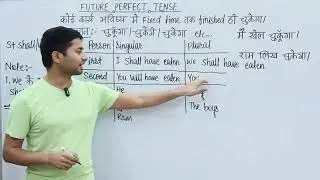 FUTURE PERFECT TENSE
कोई कार्य भविष्य में Fixed time तक finished हो चुकेगा।
चुकेगा / चुकेगी / चुकेगा etc...
मैं खेल चुकूंगा।
St shall/
Person Singular Plural
First I Shall have eaten We Shall have eaten
राम लिख चुकेगा।
Note:-
Second You will have eaten You
I, we के
He
Ram
The boys